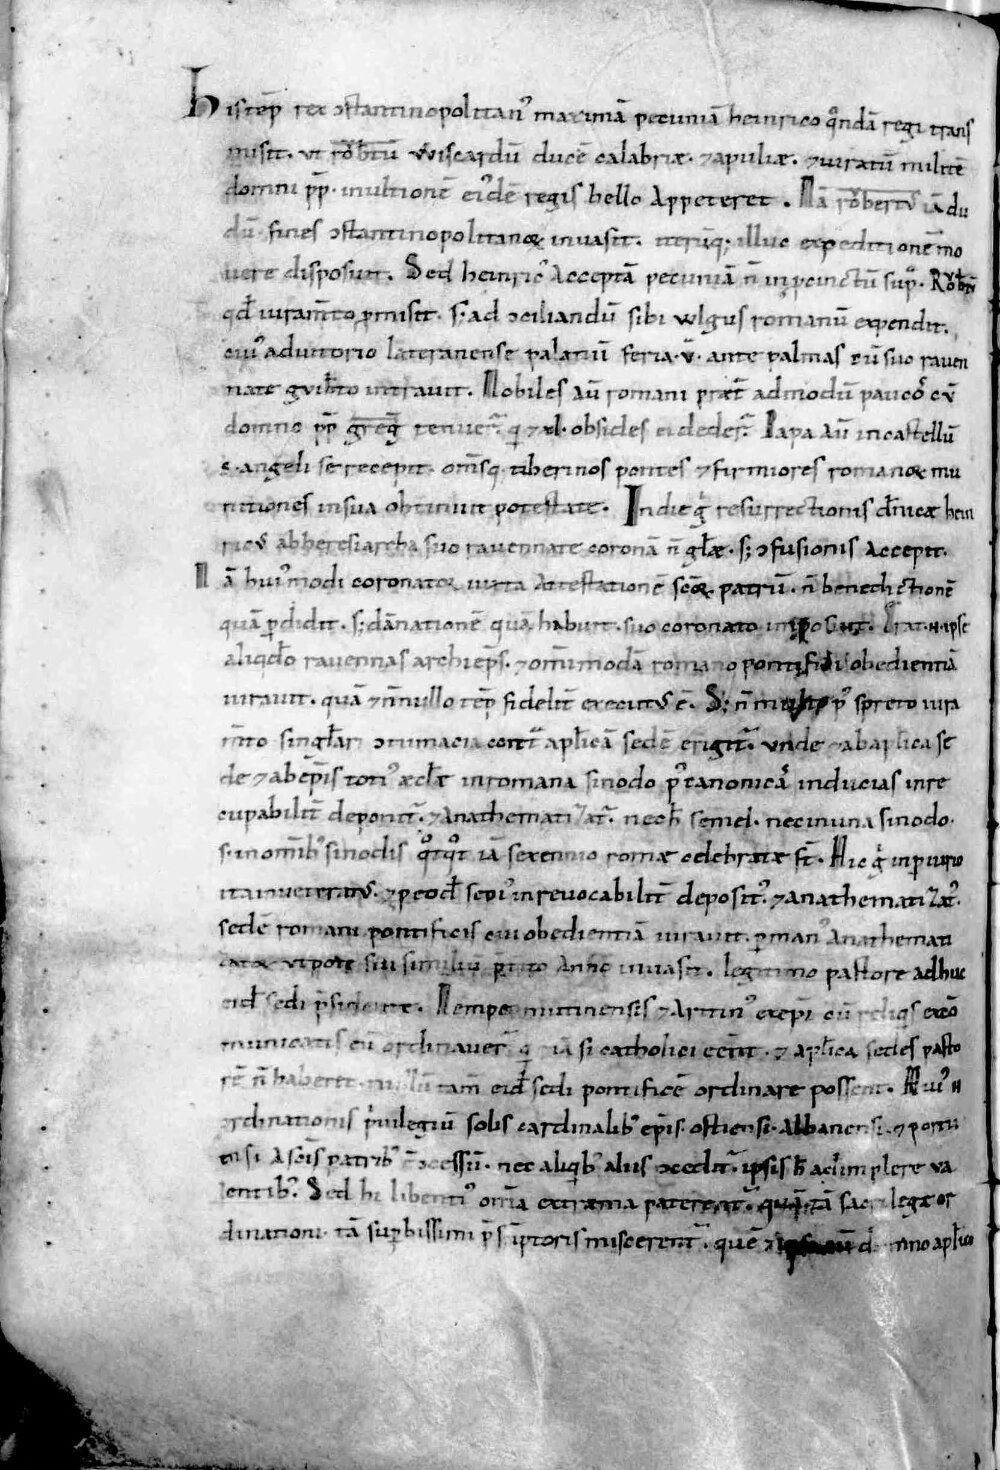 His tēp̄ rex ↄstantinopolitan⁹ maximā pecuniā heinrico q̊ndā regi trans
misit. ut rotb̄tū Wiscardū ducē calabriæ. ⁊ apuliæ. ⁊ iuratū militē
domni pp̄. in ultionē ei⁹dē regis bello Appeteret. Nā rotb̄ertꝰ iā du
dū fines ↄstantinopolitanoꝝ inuasit. iterūq; illuc expeditionē mo
uere disposuit. Sed heinric⁹ Acceptā pecuniā n̄ in procinctū sup̄. Rotb̄tū
qđ iuram̄to ꝓmisit. s; ad ↄciliandū sibi wlgus romanū expendit.
cui⁹ adiutorio lateranense palatiū feria .v. ante palmas cū suo raven
nate guib̄to intravit. Nobiles aū romani præt̄ admodū paucos cū
domno pp̄ greḡ tenuer̄. q̄ ⁊ xl. obsides ei deder̄. Papa Aū in castellū
s. angeli se recepit. om̄sq; tiberinos pontes ⁊ firmiores romanoꝝ mu
nitiones in sua obtinuit potestate. In die g̊ resurrectionis dn̄icæ hein
ricꝰ ab heresiarcha suo ravennate coronā n̄ gl̄æ. s; ↄfusionis Accepit.
Nā hui⁹modi coronatoꝝ iuxta Attestationē sc̄oꝝ patrū. n̄ benedictionē
quā ꝑdidit. s; dānationē quā habuit. suo coronato inposuit. Erat .n. ipse
aliqđo ravennas archiep̄s. ⁊ om̄imodā romano pontifici obedientiā
iuravit. quā ⁊ n̄nullo tēp̄ fidelit̄ executꝰ ē. S; n̄ multo p⁹ spreto iura
m̄to singl̄ari ↄtumacia cont̄ apl̄icā sedē erigit̄. unde ⁊ ab apl̄ica se
de ⁊ ab ep̄is toti⁹ æccl̄æ in romana sinodo p⁹ canonicas inducias inre
cupabilit̄ deponit̄. ⁊ Anathematizat̄. nec h̄ semel. nec in una sinodo.
s; in omīb⁹ sinodis q̊tq̊t iā sexennio romæ celebratæ st̄. Hic g̊ in ꝑiurio
ita inveteratꝰ. ⁊ ꝓeođ sepi⁹ inrevocabilit̄ deposit⁹. ⁊ anathematizat⁹.
sedē romani pontificis cui obedientiā iuravit. ꝑ man⁹ Anathemati
catoꝝ utpote sui similiū p̄terito Anno invasit. legitimo pastore adhuc
eid̄ sedi p̄sidente. Nempe mutinensis ⁊ Arretin⁹ exep̄i cū reliq̄s exco
municatis eū ordinaver̄. q̄ &iā si catholici eēnt. ⁊ apl̄ica sedes pasto
rē n̄ haberet. nullū tam̄ eid̄ sedi pontificē ordinare possent. Hui⁹ .n.
ordinationis p̄uilegiū solis cardinalib⁹ ep̄is. ostiensi. Albanensi. ⁊ portu
ensi A sc̄is patrib⁹ ē ↄcessū. nec aliqib⁹ aliis ↄcedit̄. ipsis h̄ adimplere va
lentib⁹. Sed hi libenti⁹ om̄a extrema paterent̄. quā tā sacrilegæ or
dinationi. tā suꝑbissimi p̄sumptoris miscerent̄. quē ⁊ ipsi cū domno apl̄ico